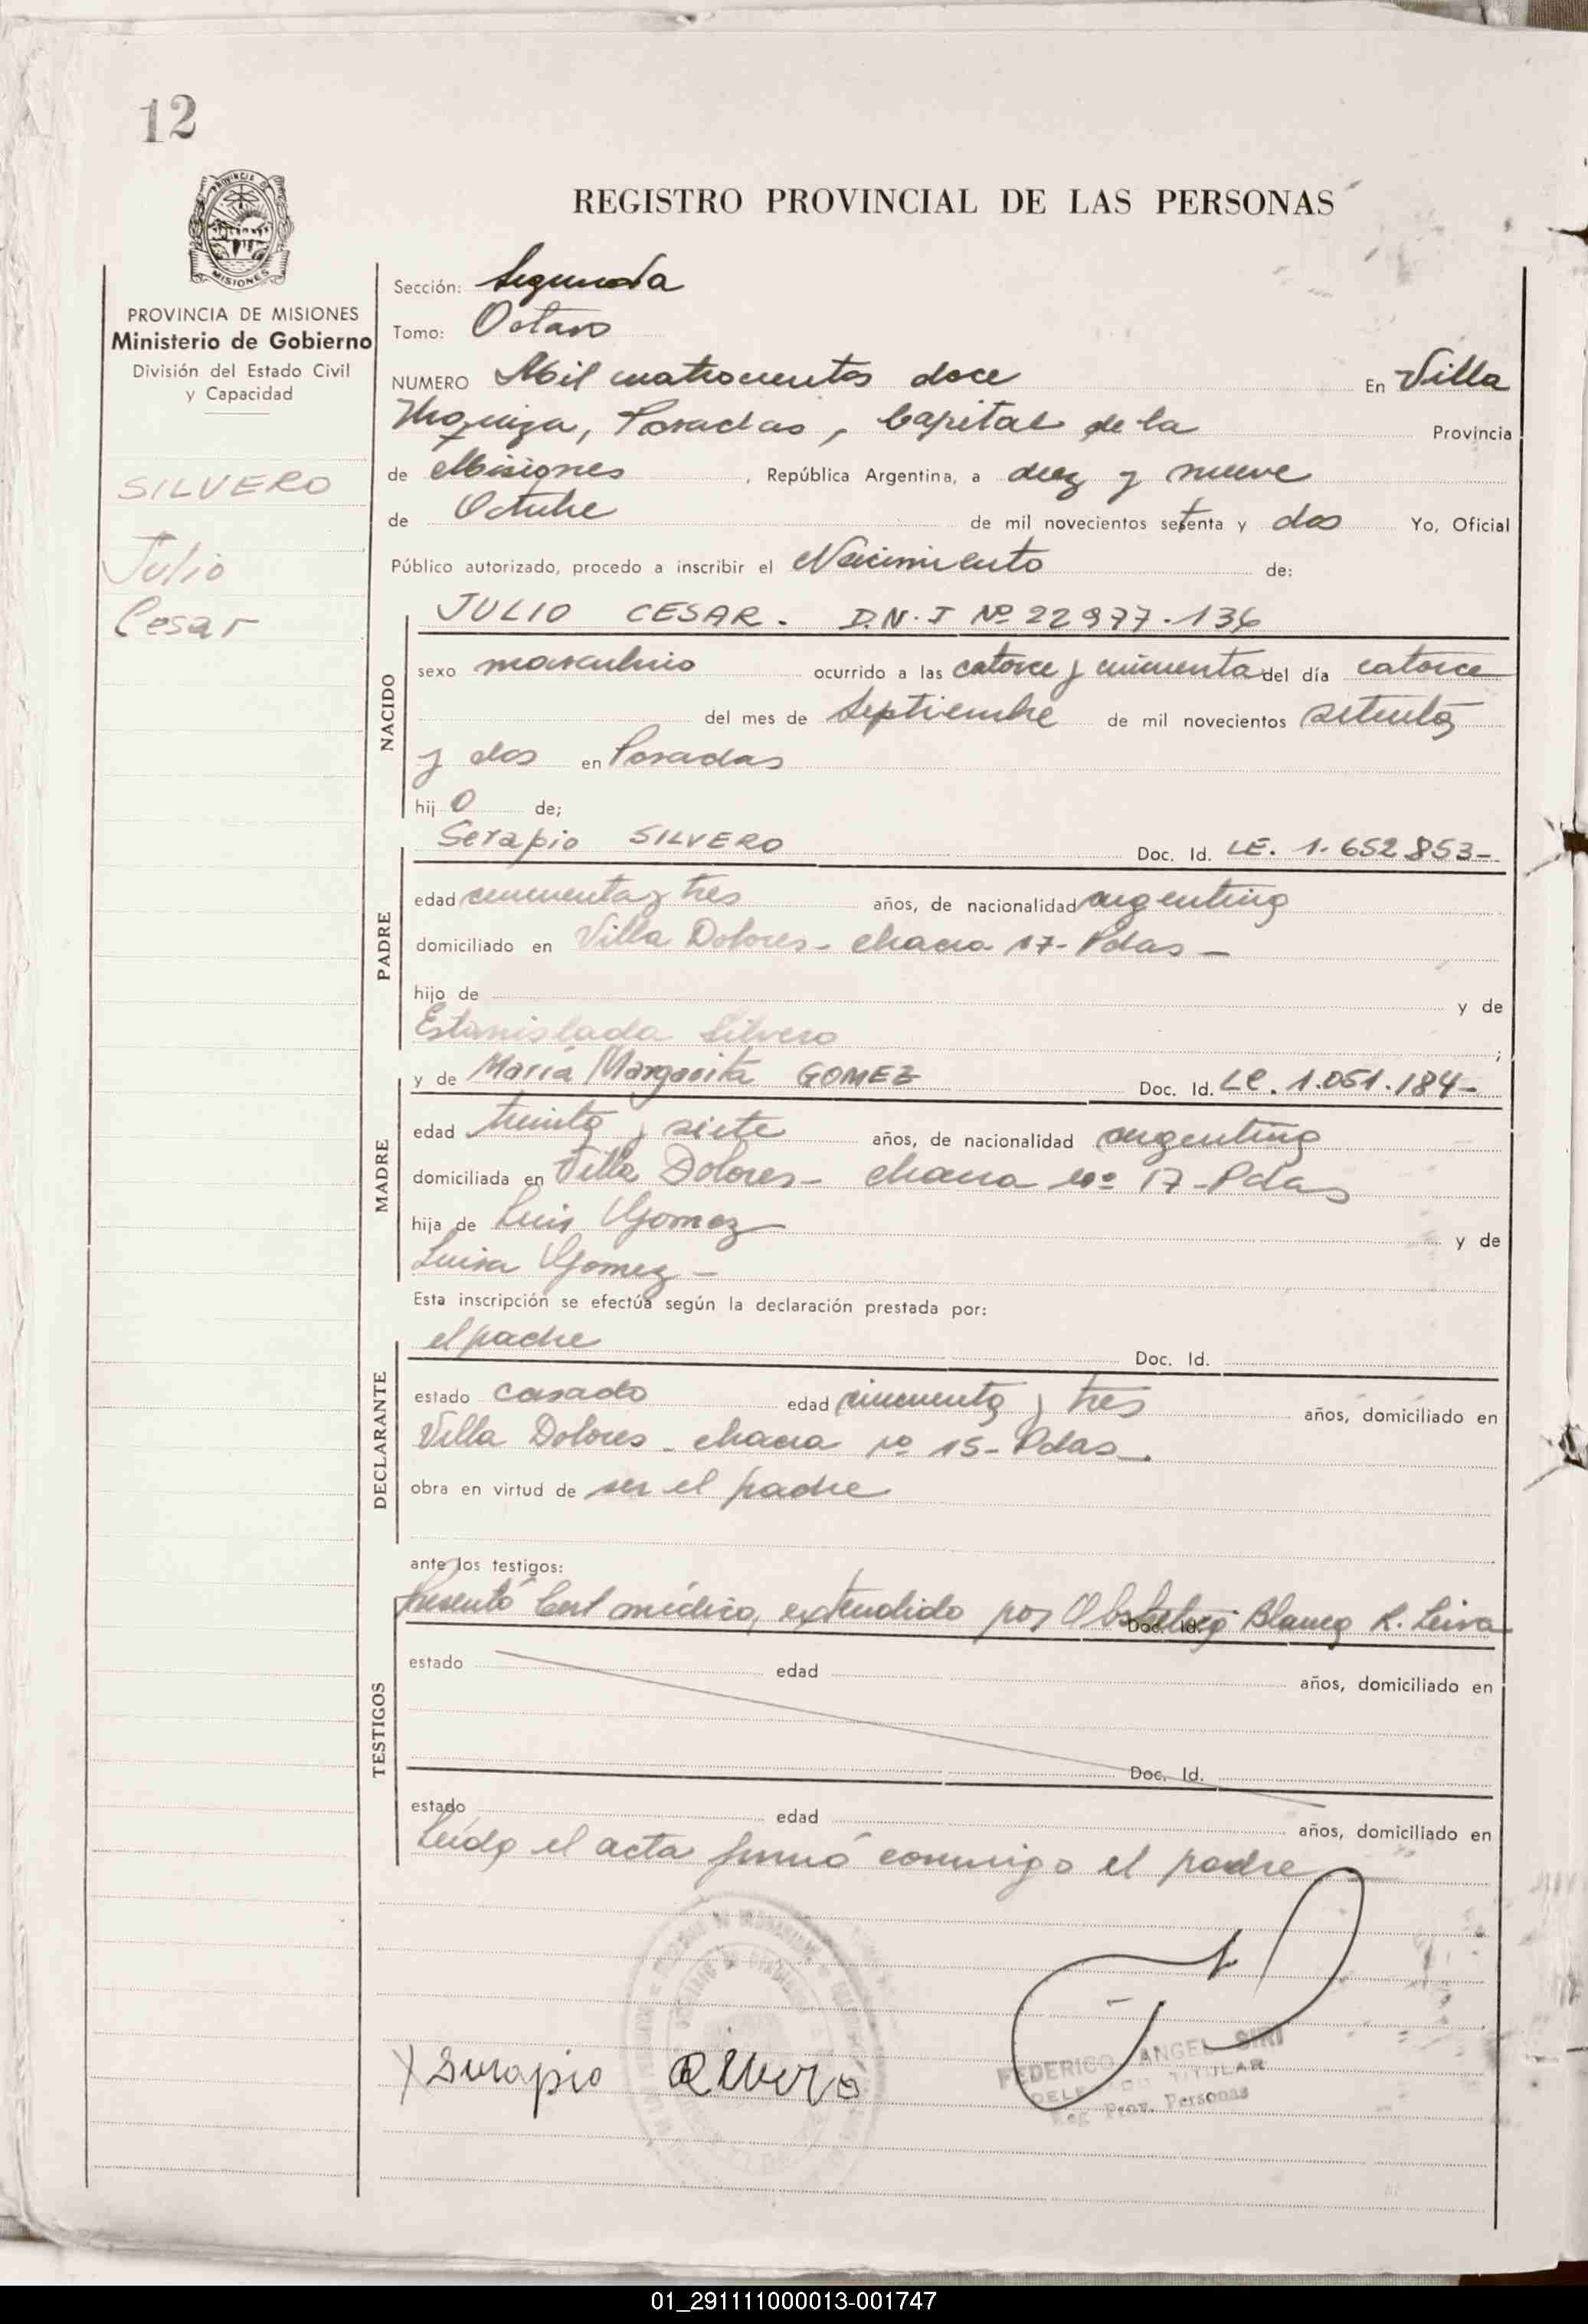 12
PROVINCIA DE MISIONES
Ministerio de Gobierno
División del Estado Civil
y Capacidad
SILVERO
Julio
Cesar
REGISTRO PROVINCIAL DE LAS PERSONAS
Sección: Segunda
Tomo: Octavo
NUMERO Mil cuatrocientos doce En Villa
Urquiza, Posadas, Capital de la Provincia
de Misiones, República Argentina, a diez y nueve
de Octubre de mil novecientos setenta y dos Yo, Oficial
Público autorizado, procedo a inscribir el Nacimiento de:
NACIDO
JULIO CESAR. D.N.I Nº 22977.136
sexo masculino ocurrido a las catorce y cincuenta del día catorce
del mes de Septiembre de mil novecientos setenta
y dos en Posadas
hijo de;
PADRE
Serapio SILVERO Doc. Id. LE. 1.652.853-
edad cincuenta y tres años, de nacionalidad argentina
domiciliado en Villa Dolores - chacra 17- Pdas -
hijo de y de
Estanislada Silvero ;
MADRE
y de María Margarita GOMEZ Doc. Id. LC. 1.051.184-
edad treinta y siete años, de nacionalidad argentina
domiciliada en Villa Dolores - chacra nº 17 - Pdas
hija de Luis Gomez y de
Luisa Gomez -
Esta inscripción se efectúa según la declaración prestada por:
DECLARANTE
el padre Doc. Id.
estado casado edad cincuenta y tres años, domiciliado en
Villa Dolores - chacra nº 15- Pdas -.
obra en virtud de ser el padre
ante los testigos:
TESTIGOS
Presentó Cert médico, extendido por Obstetra Blanca R. Leiva
Doc. Id.
estado edad años, domiciliado en
Doc. Id.
estado edad años, domiciliado en
Leída el acta firmó conmigo el padre
X Serapio Silvero
FEDERICO ANGEL SIRI
DELEGADO TITULAR
Reg. Prov. Personas
01_291111000013-001747